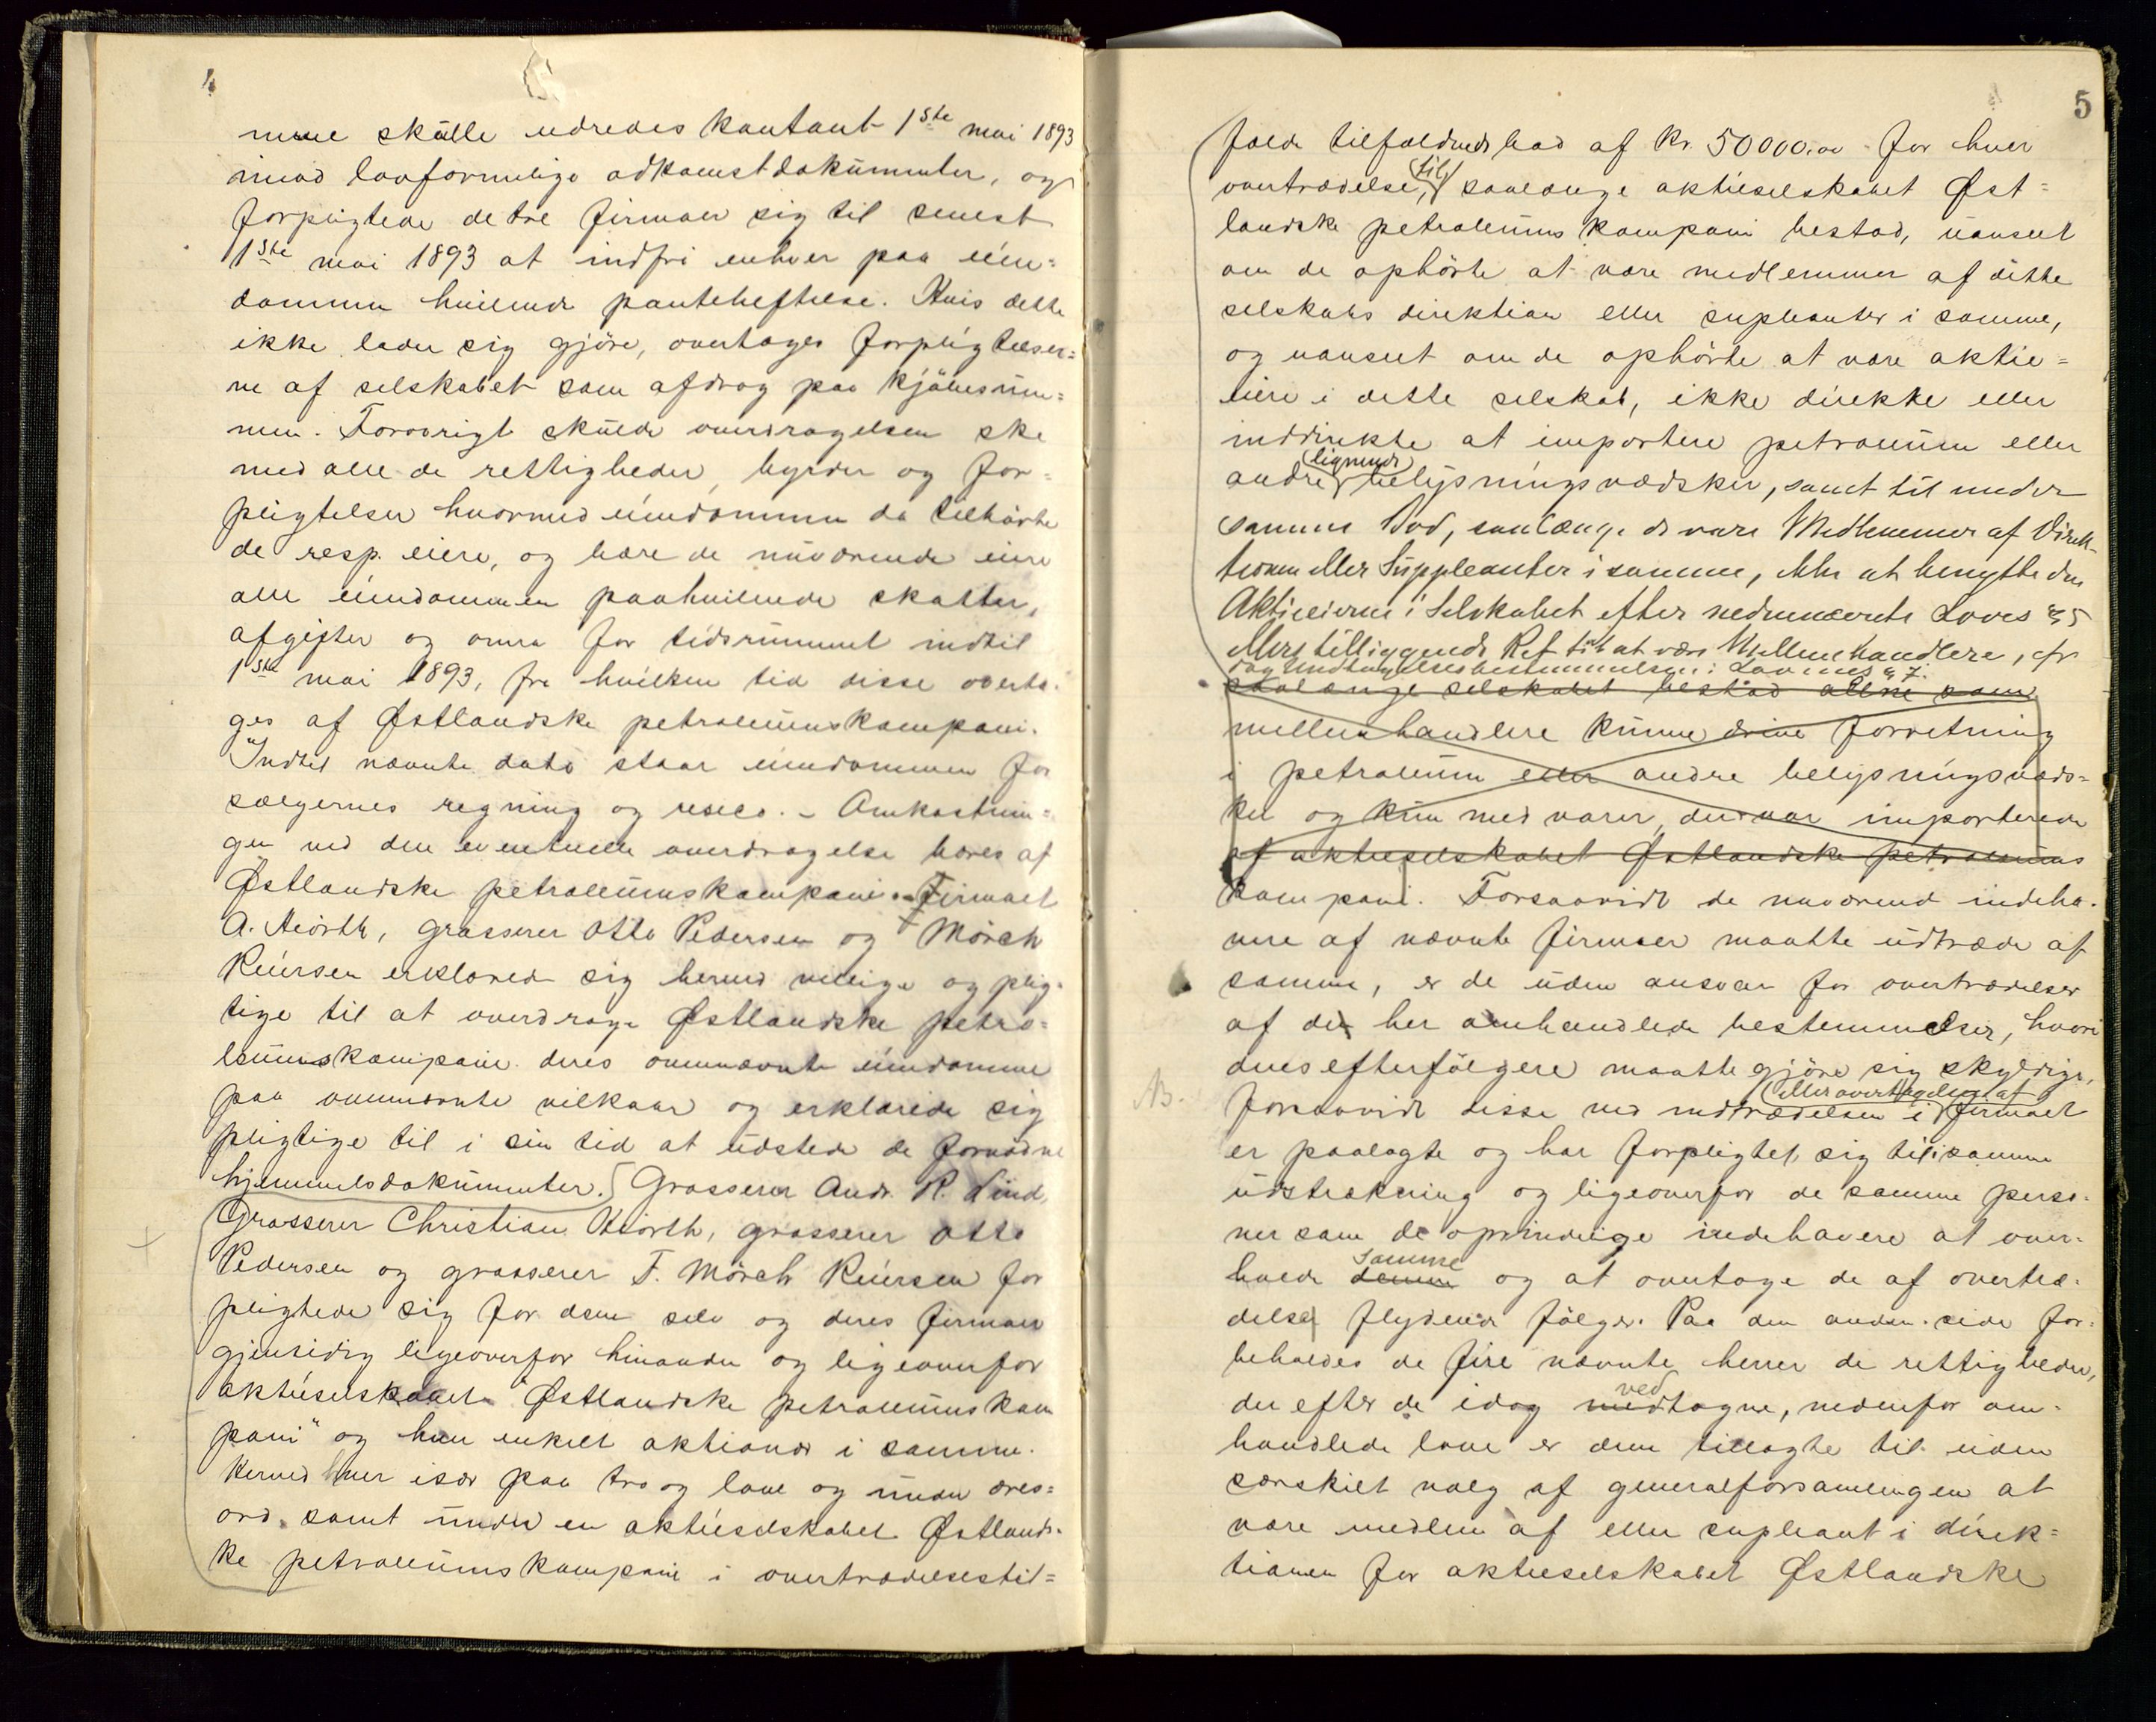 mene skulle udredes kontant 1ste mai 1893
mod lovformelige adkomstdokumenter, og
forpligtede de tre firmaer sig til senest
1ste mai 1893 at indfri enhver paa eien=
dommen hvilende panteheftelse. Hvis dette
ikke lader sig gjöre, overtages forpligtelser=
ne af selskabet som afdrag paa kjöbesum=
men. Forövrigt skulde overdragelsen ske
med alle de rettigheder, byrder og for=
pligtelser hvormed eiendommen da tilhörte
de resp. eiere, og bære de nuværende eiere
alle eiendommen paahvilende skatter,
afgifter og onera for tidsrummet indtil
1ste mai 1893, fra hvilken tid disse overta=
ges af Østlandske petroleumskompani.
Indtil nævnte dato staar eiendommen for
sælgernes regning og risico. - Omkostnin=
ger ved den eventuelle overdragelse bæres af
Østlandske petroleumskompani. - Firmaet
A. Hiorth, grosserer Otto Pedersen og Mörch
Reiersen erklærede sig herved villige og plig=
tige til at overdrage Østlandske petro=
leumskompani deres ovennævnte eiendomme
paa ovennævnte vilkaar og erklærede sig
pligtige til i sin tid at udstede de fornödne
hjemmelsdokumenter. Grosserer Andr. R. Lind,
Grosserer Christian Hiorth, grosserer Otto
Pedersen og grosserer F. Mörch Reiersen for
pligtede sig for dem selv og deres firmaer
gjensidig ligeoverfor hinanden og ligeoverfor
aktieselskabet Østlandske petroleumskom
pani" og hver enkelt aktionær i samme.
Herved hver især paa tro og love og under æres=
ord samt under en aktieselskabet Østlands=
ke petroleumskompani i overtrædelsestil=
5
fælde tilfaldende bod af kr. 50000.00 for hver
overtrædelse, til saalænge aktieselskabet Øst=
landske petroleums kompani bestod, uanseet
om de ophörte at være medlemmer af dette
selskabs direktion eller supleanter i samme,
og uanseet om de ophörte at være aktie=
eiere i dette selskab, ikke direkte eller
inddirekte at importere petroleum eller
andre lignende belysningsvædsker, samt til under
samme Bod, saalænge de vare Medlemmer af Direk-
tionen eller Suppleanter i samme, ikke at benytte den
Aktieeierne i Selskabet efter nedennævnte Loves § 5
ellers tilliggende Ret til at være Mellemhandlere, cfr
dog Undtagelsesbestemmelsen i Lovenes § 7.
saalænge selskabet bestod allene som
mellemhandlere kunne drive forretning
i petroleum eller andre belysningsvæds=
ker og kun med varer, der var importerede
af aktieselskabet Østlandske petroleums
kompani. Forsaavidt de nuværende indeha=
vere af nævnte firmaer maatte udtræde af
samme, er de uden ansvar for overtrædelser
af de her omhandlede bestemmelser, hvori
deres efterfölgere maatte gjöre sig skyldige,
NB. forsaavidt disse ved indtrædelsen i eller overtagelsen af firmaet
er paalagte og har forpligtet sig til i samme
udstrækning og ligeoverfor de samme perso=
ner som de oprindelige indehavere at over=
holde denne samme og at overtage de af overtræ=
delse flydende fölger. Paa den anden side for=
beholdes de fire nævnte herrer de rettigheder,
der efter de idag medtagne ved, nedenfor om=
handlede love er dem tillagte til uden
særskilt valg af generalforsamlingen at
være medlem af eller supleant i direk=
tionen for aktieselskabet Østlandske